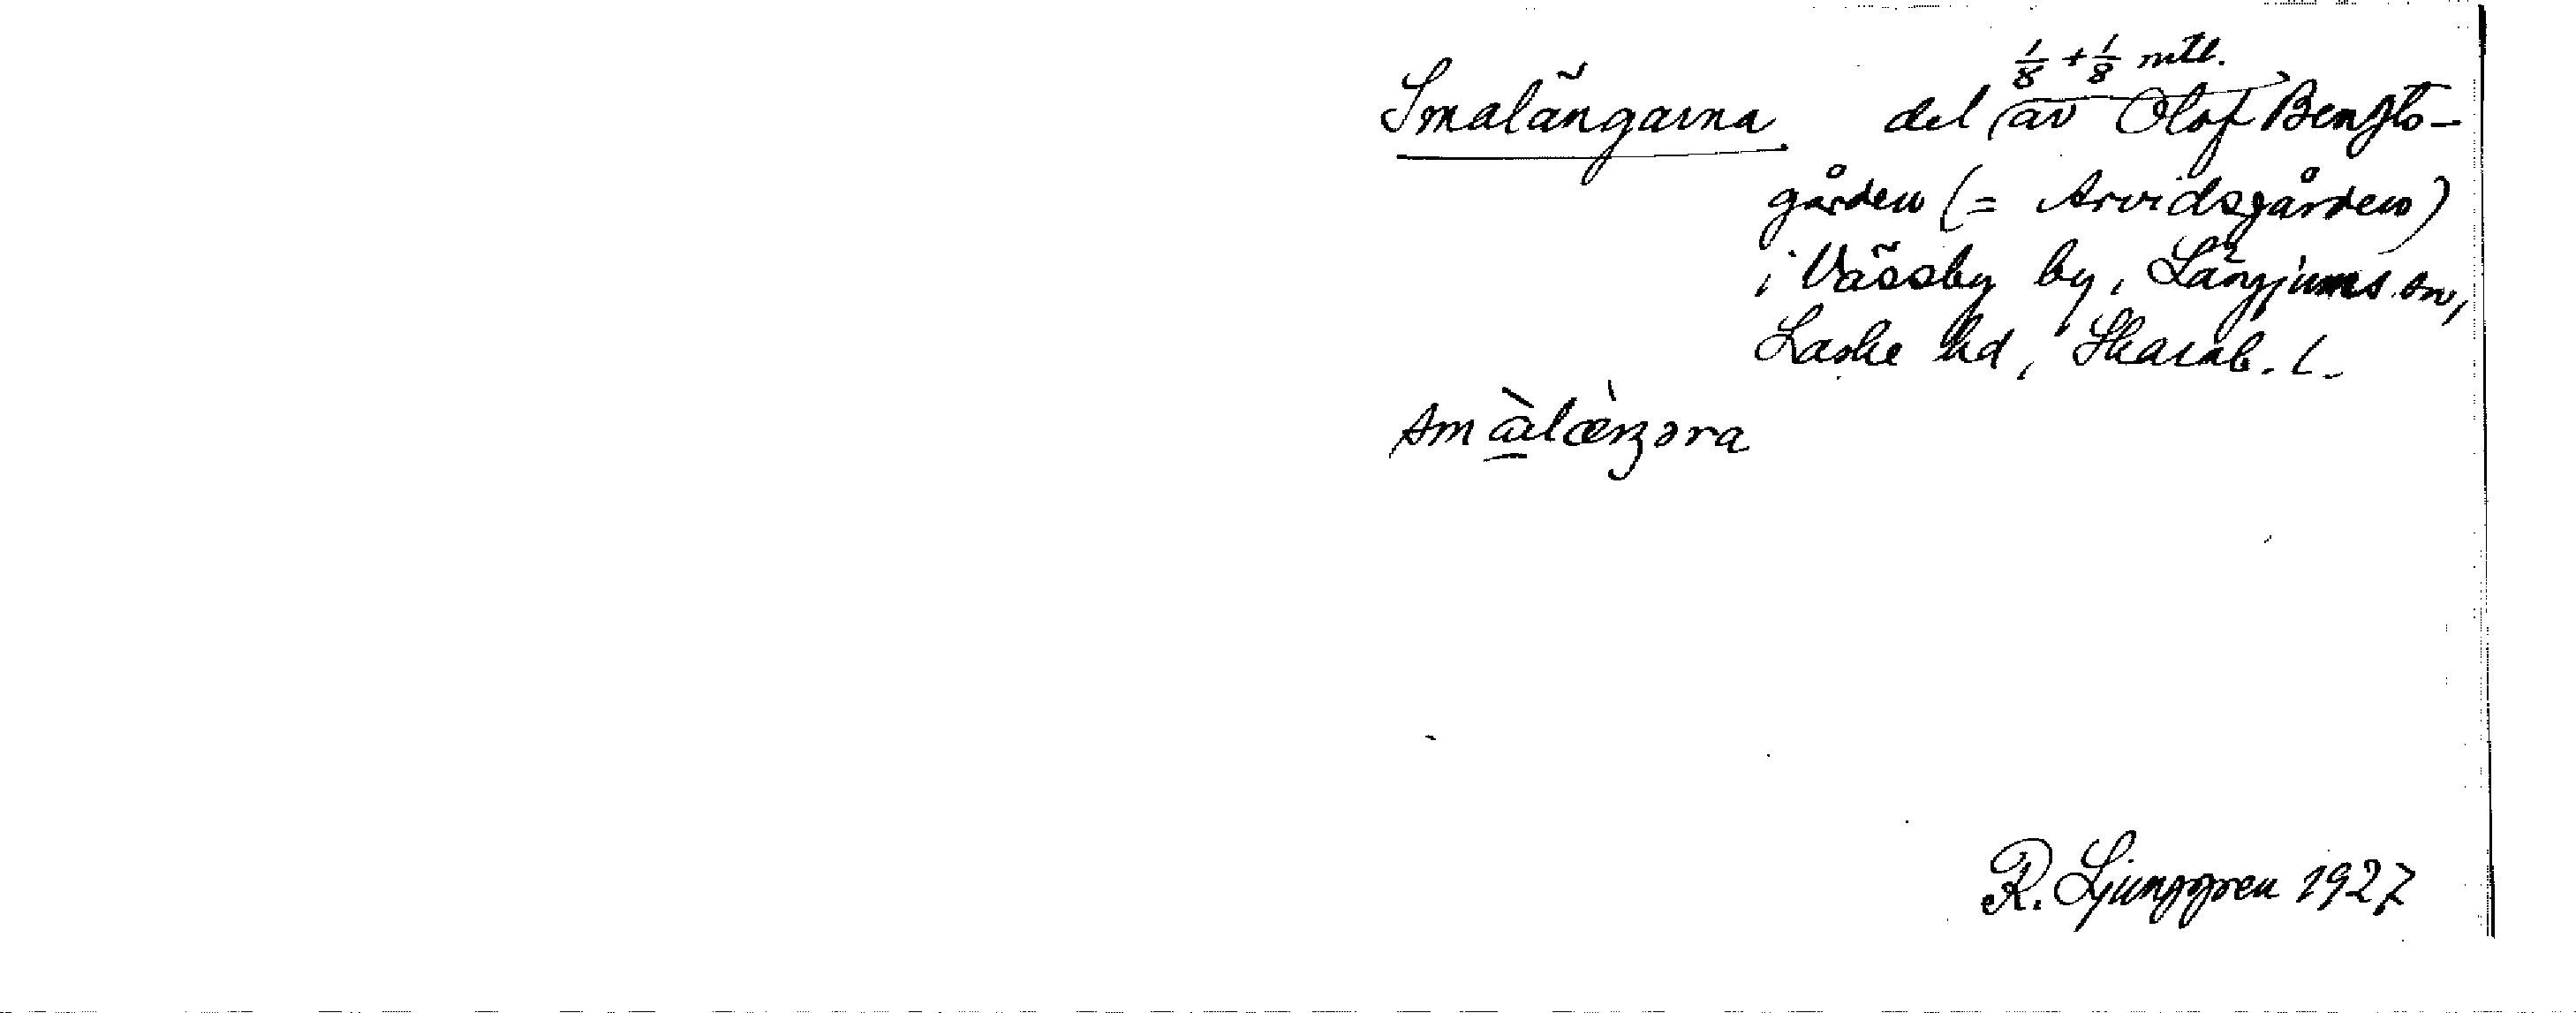 1/8 + 1/8 mtl.
Smalängarna del (av Olof Bengts-
gården (= Arvidsgården)
i Vässby by, Långjums sn,
Laske hd, Skarab. l.
smàlæ̀ŋəra
R. Ljunggren 1927